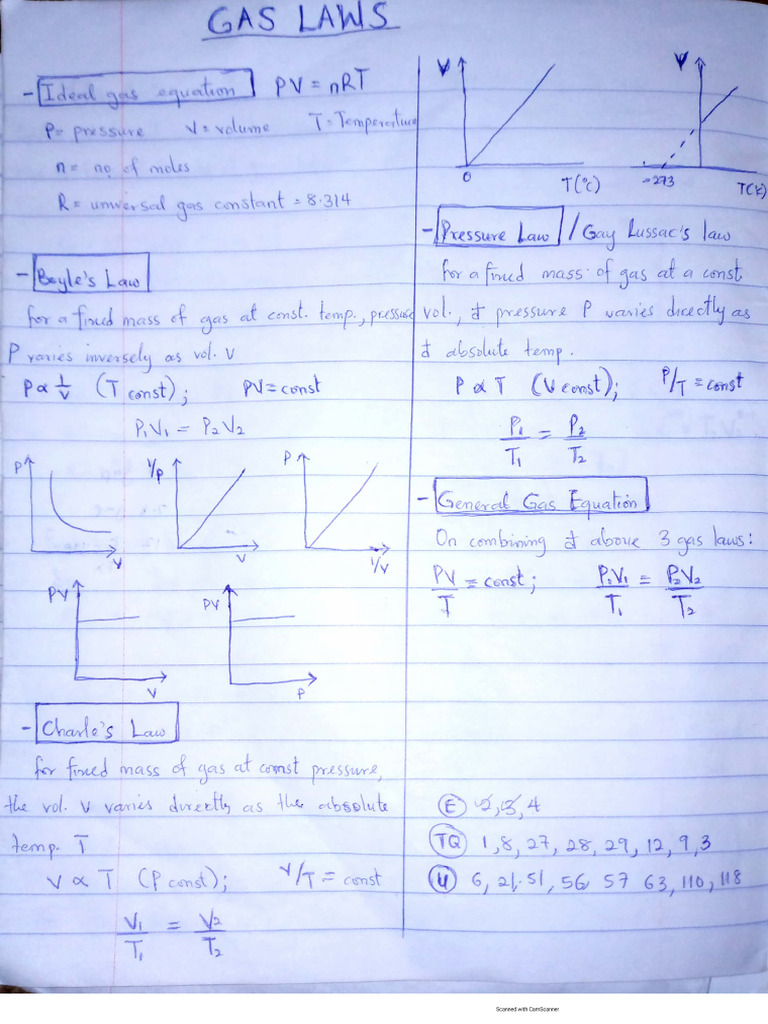 GAS LAWS
- Ideal gas equation PV = nRT
P = pressure V = volume T = Temperature
n = no of moles
R = unversal gas constant = 8.314
- Boyle's Law
for a fixed mass of gas at const. temp., pressure
P varies inversely as vol. V
P ∝ 1/V (T const); PV = const
P₁V₁ = P₂V₂
P
V
1/P
V
P
1/V
PV
V
PV
P
- Charle's Law
for fixed mass of gas at const pressure,
the vol. V varies directly as the absolute
temp. T
V ∝ T (P const); V/T = const
V₁/T₁ = V₂/T₂
V
0
T(°C)
V
-273
T(K)
- Pressure Law / Gay Lussac's law
for a fixed mass of gas at a const
vol., pressure P varies directly as
absolute temp.
P ∝ T (V const); P/T = const
P₁/T₁ = P₂/T₂
- General Gas Equation
On combining above 3 gas laws:
PV/T = const; P₁V₁/T₁ = P₂V₂/T₂
E 2, 3, 4
TQ 1, 8, 27, 28, 29, 12, 9, 3
U 6, 21, 51, 56 57 63, 110, 118
Scanned with CamScanner